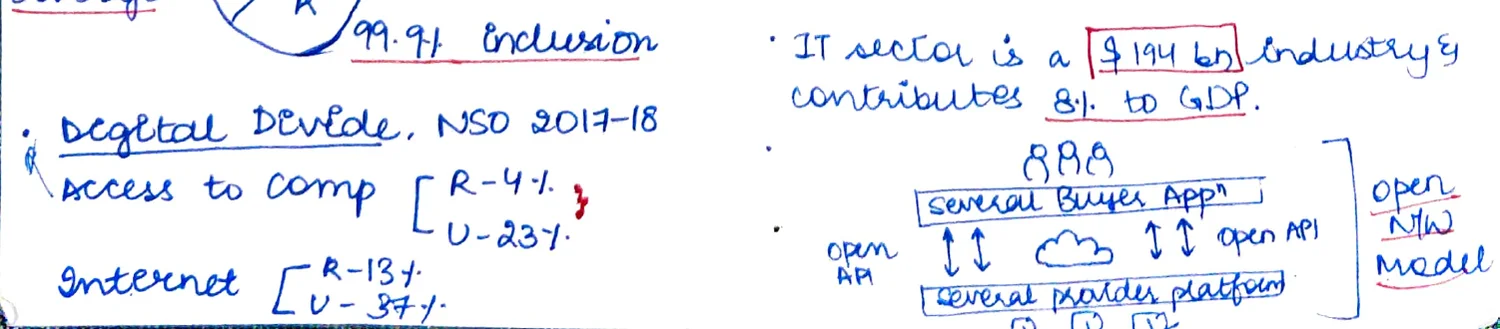 R
99.9% inclusion
• Digital Divide. NSO 2017-18
Access to comp [ R-4%.
U-23%.
Internet [ R-13%.
U-37%.
• IT sector is a $194 bn industry &
contributes 8% to GDP.
Several Buyer Appⁿ
Open API
Open API
Several provider platform
Open
N/W
Model